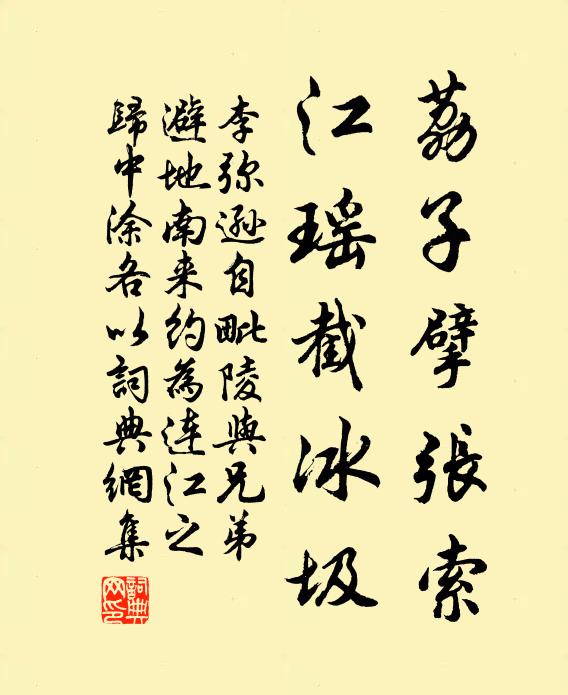 荔子擘張索
江瑶截冰圾
李弥遜自毗陵與兄弟
避地南来約為連江之
歸中涂各以詞典網集
詞典
网印